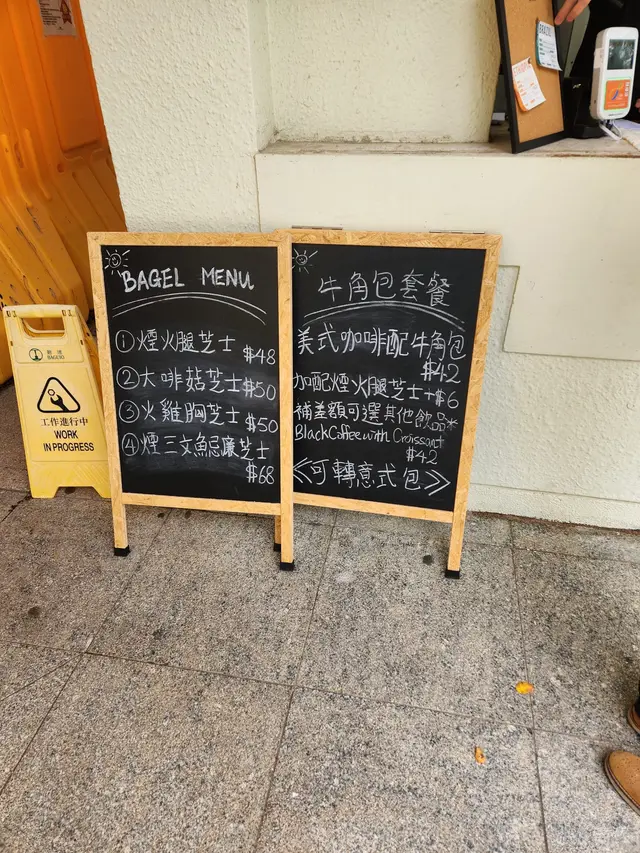 BAGEL MENU
①煙火腿芝士 $48
②大啡菇芝士 $50
③火雞胸芝士 $50
④煙三文魚忌廉芝士
$68
牛角包套餐
美式咖啡配牛角包
$42
加配煙火腿芝士+$6
補差額可選其他飲品*
Black Coffee with Croissant
$42
<<可轉意式包>>
工作進行中
WORK
IN PROGRESS